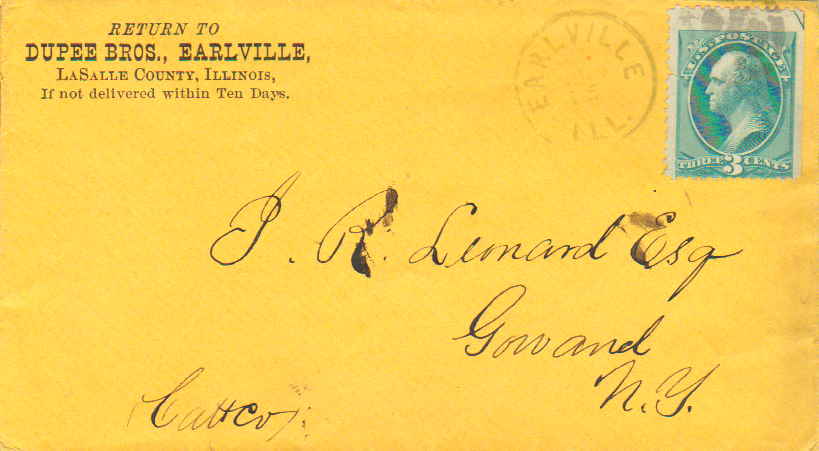 RETURN TO
DUPEE BROS., EARLVILLE,
LASALLE COUNTY, ILLINOIS,
If not delivered within Ten Days.
EARLVILLE
ILL.
U.S. POSTAGE
THREE 3 CENTS
J. R. Leonard Esq
Gowand
N.Y.
Catt Co.